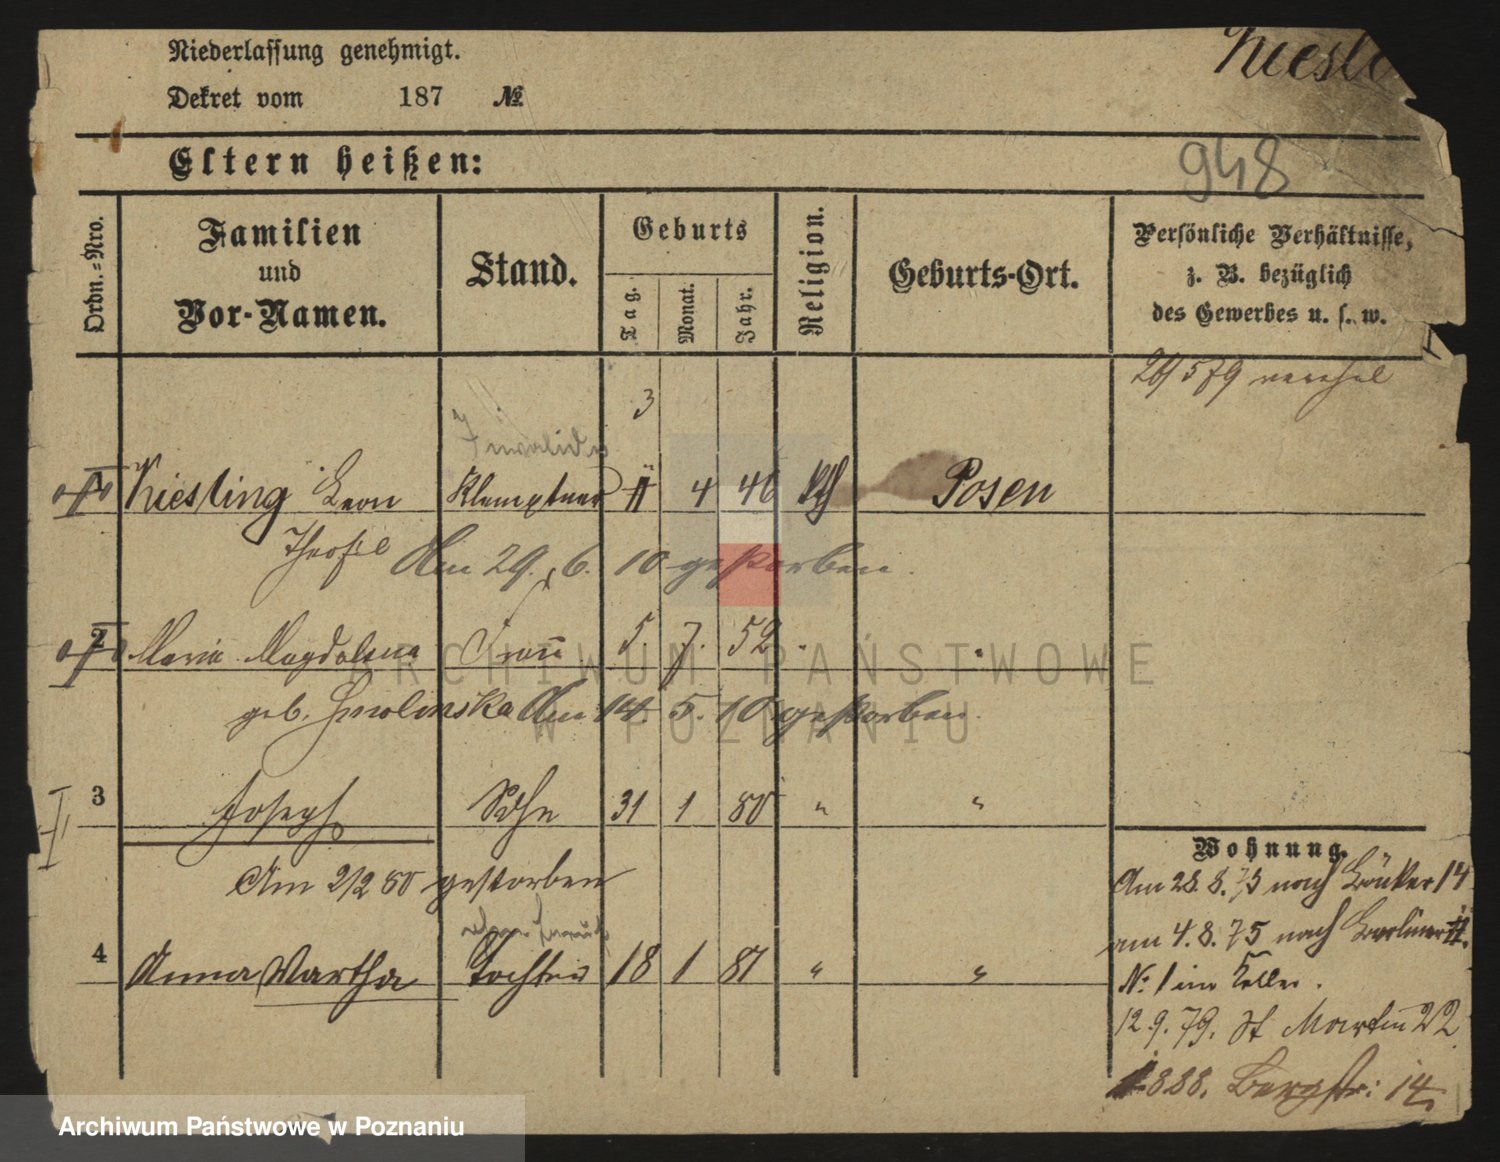 Niederlassung genehmigt.
Dekret vom 187 №
948
Eltern heißen:
Ordn.=Nro.
Familien
und
Vor-Namen.
Stand.
Geburts
Tag.
Monat.
Jahr.
Religion.
Geburts-Ort.
Persönliche Verhältnisse,
z. B. bezüglich
des Gewerbes u. s. w.
3
Invalide
1 Kiesling Leon Klemptner 4 46 Kth Posen
Theofil Am 29. 6. 10 gestorben.
2 Maria Magdalena Frau 5. 7. 52 "
geb. Smolinska Am 14. 5. 10 gestorben.
3 Joseph Sohn 31 1 80 " "
Am 2/2 80 gestorben
4 Anna Martha Tochter 18 1 81 " "
Wohnung.
Am 28. 8. 75 nach 14
am 4. 8. 75 nach Berliner
№ 1 im Keller.
12. 9. 79. St Martin 22
888. Bergstr: 14.
ARCHIWUM PAŃSTWOWE
W POZNANIU
Archiwum Państwowe w Poznaniu